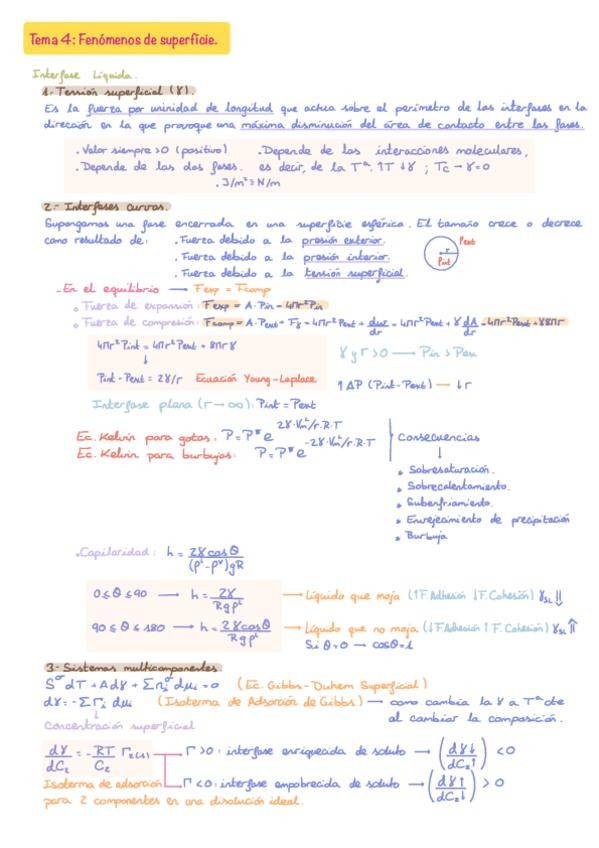 Tema 4: Fenómenos de superficie.
Interfase Líquida.
1.- Tensión superficial (γ).
Es la fuerza por uninidad de longitud que actua sobre el perímetro de las interfases en la
dirección en la que provoque una máxima disminución del área de contacto entre las fases.
. Valor siempre >0 (positivo) . Depende de las interacciones moleculares,
. Depende de las dos fases. es decir, de la Tª. ↑T ↓γ ; Tc → γ=0
. J/m² = N/m
2.- Interfases curvas.
Supongamos una fase encerrada en una superficie esférica. El tamaño crece o decrece
como resultado de: . Fuerza debido a la presión exterior.
. Fuerza debido a la presión interior.
. Fuerza debido a la tensión superficial.
r Pext
Pint
- En el equilibrio → Fexp = Fcomp
o Fuerza de expansión: Fexp = A·Pin = 4πr²Pin
o Fuerza de compresión: Fcomp = A·Pext + Fγ = 4πr²Pext + dw/dr = 4πr²Pext + γ dA/dr = 4πr²Pext + γ8πr
4πr²Pint = 4πr²Pext + 8πrγ
↓
Pint - Pext = 2γ/r Ecuación Young-Laplace
γ y r >0 → Pin > Pex
↑ΔP (Pint-Pext) → ↓r
Interfase plana (r→∞): Pint = Pext
Ec. Kelvin para gotas: P = P* e^(2γ·Vm^L/r.R.T)
Ec. Kelvin para burbujas: P = P* e^(-2γ·Vm^L/r.R.T)
Consecuencias
↓
• Sobresaturación.
• Sobrecalentamiento.
• Subenfriamiento.
• Envejecimiento de precipitación
• Burbuja
. Capilaridad: h = 2γcosθ/(ρ^L-ρ^v)gR
0≤θ≤90 → h = 2γ/Rgρ^L → Líquido que moja (↑F.Adhesión ↓F.Cohesión) γSL ⇓
90≤θ≤180 → h = 2γcosθ/Rgρ^L → Líquido que no moja (↓F.Adhesión ↑F.Cohesión) γSL ⇑
Si θ=0 → cosθ=1
3- Sistemas multicomponentes.
S^σ dT + Adγ + Σni^σ dμi = 0 (Ec. Gibbs-Duhem Superficial)
dγ = -ΣΓi dμi (Isoterma de Adsorción de Gibbs) → como cambia la γ a Tª cte
al cambiar la composición.
↓
Concentración superficial
dγ/dC2 = -RT/C2 Γ2(1)
Γ>0: interfase enriquecida de soluto → (dγ↓/dC2↑) <0
Γ<0: interfase empobrecida de soluto → (dγ↑/dC2↓) >0
Isoterma de adsorción
para 2 componentes en una disolución ideal.